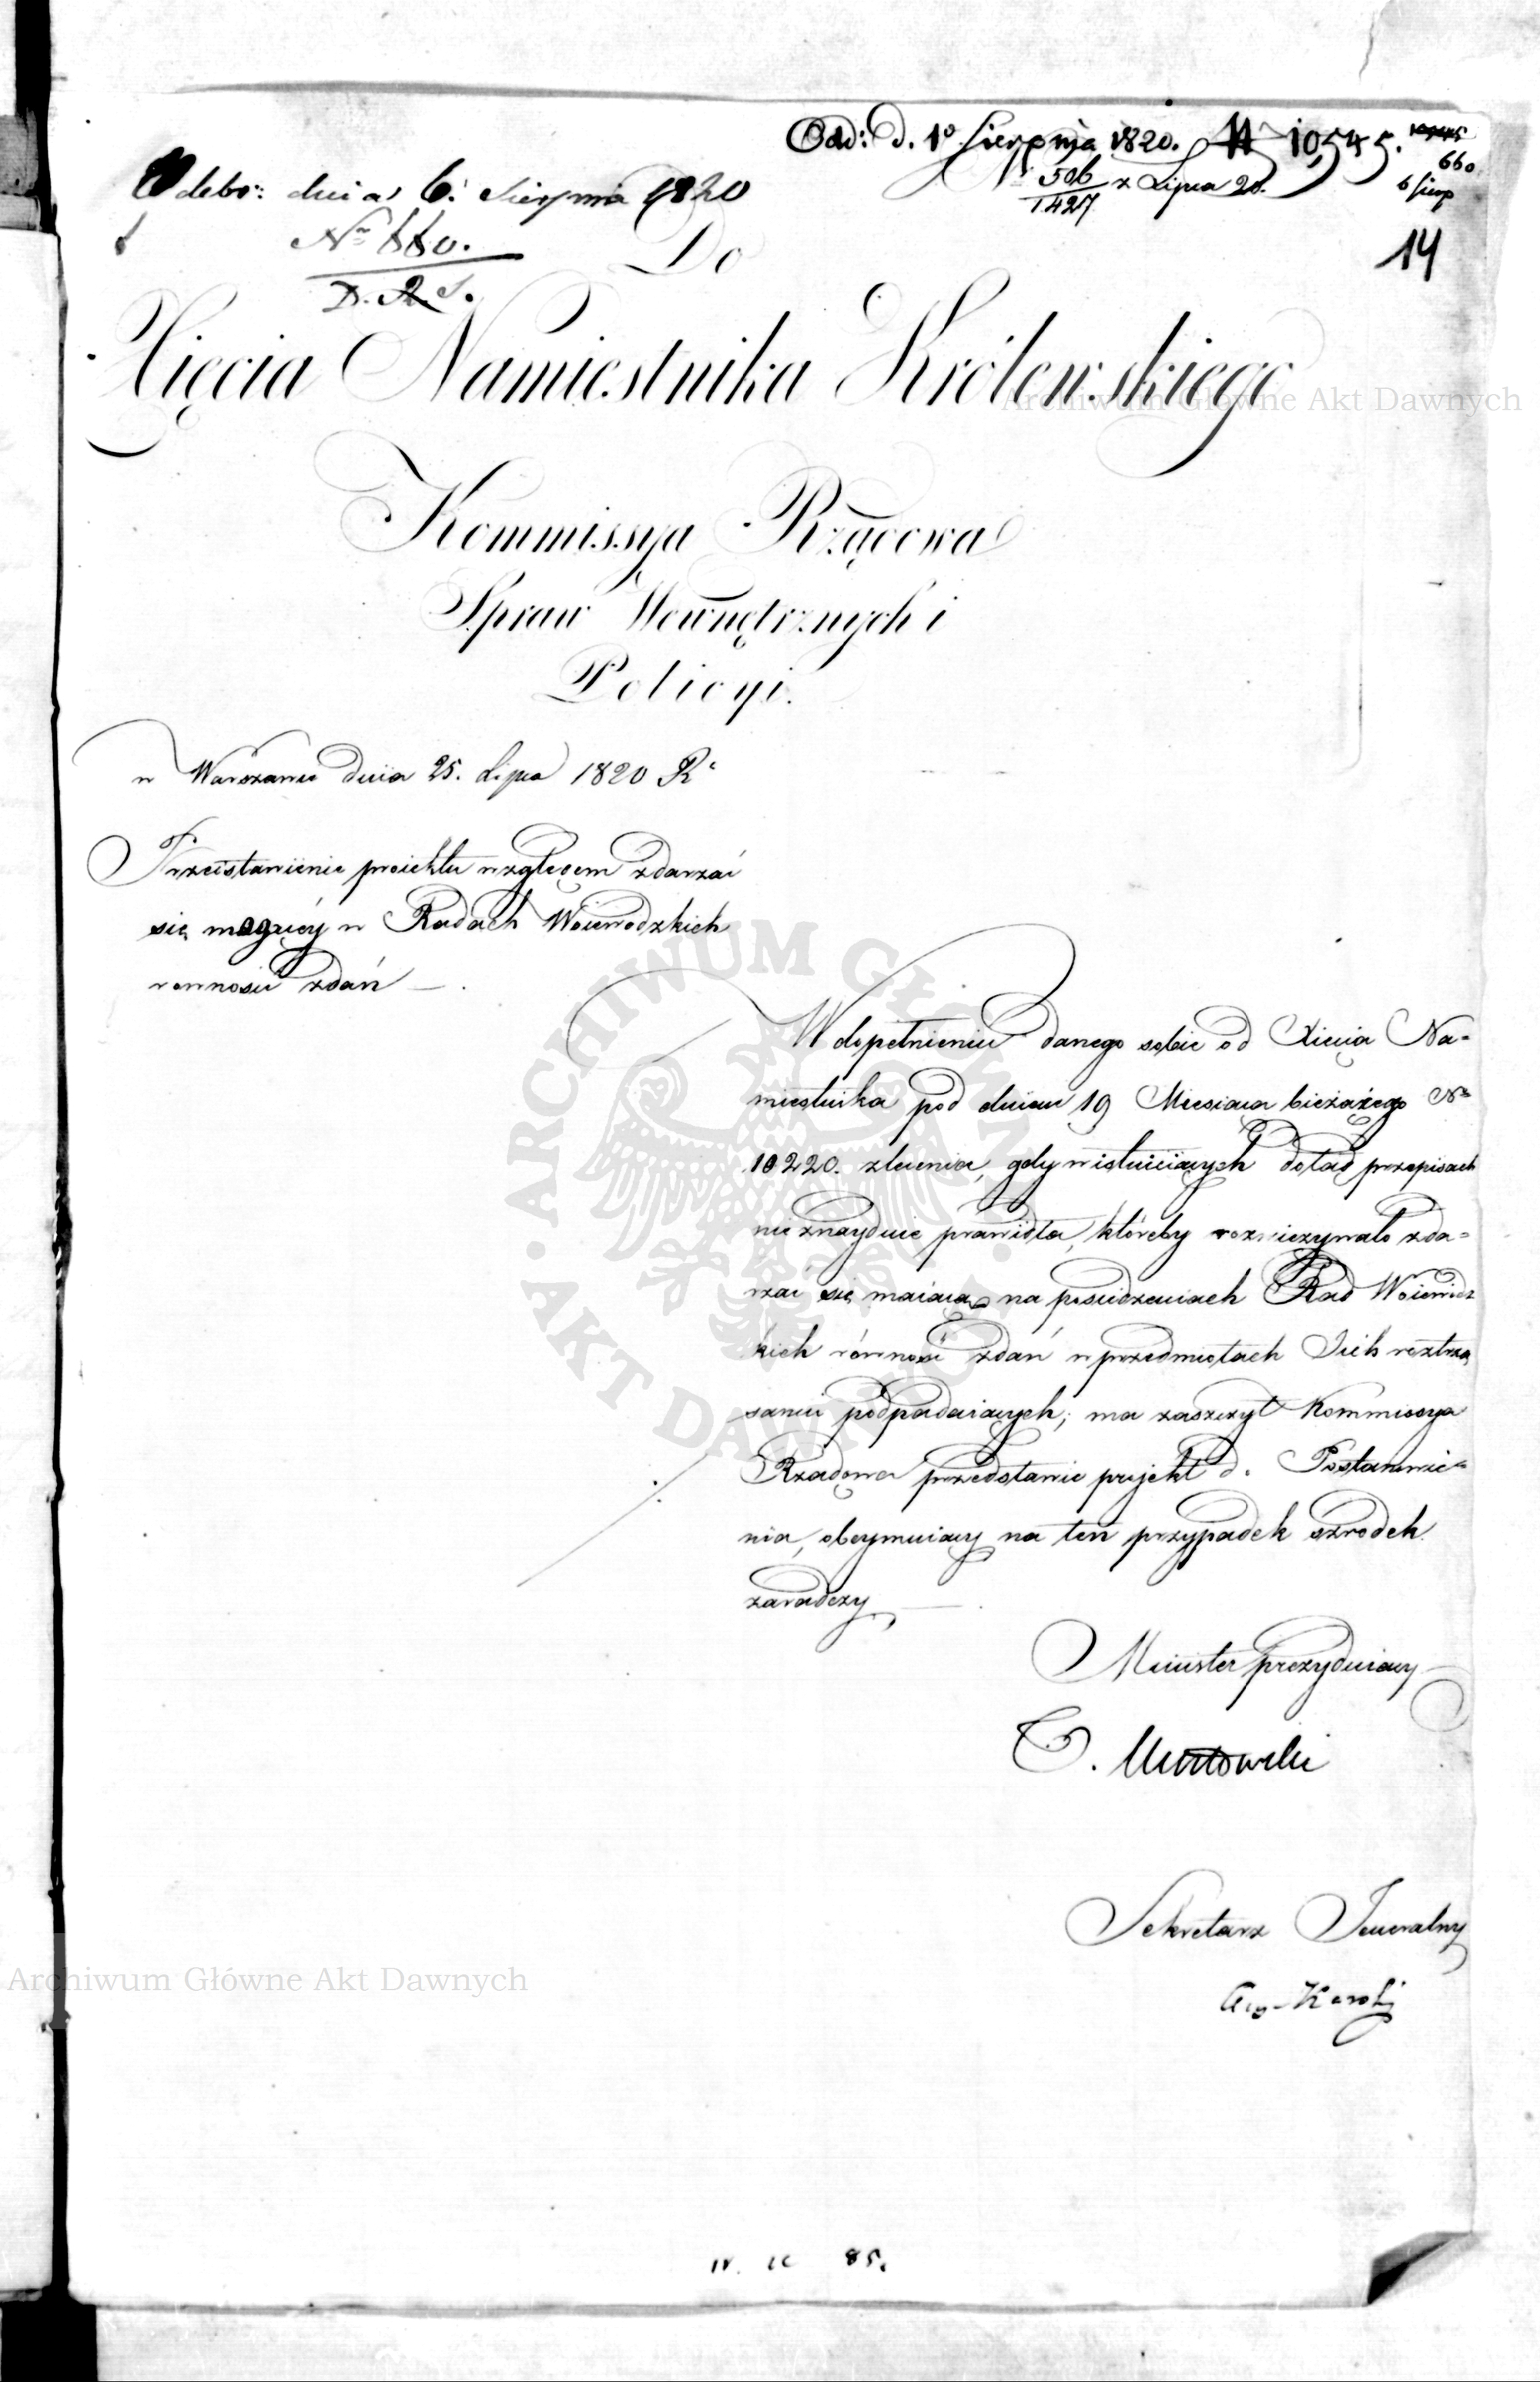 Odd: d. 1º Sierpnia 1820. N 10,545.
660
6 Sierp
N 506/1427 z Lipca 20.
14
Odebr: dnia 6. Sierpnia 1820
Nro 660.
D. R. S.
Do
Xięcia Namiestnika Królewskiego
Kommissya Rządowa
Spraw Wewnętrznych i
Policyi.
w Warszawie dnia 25. Lipca 1820 R.
Przedstawienie proiektu względem zdarzać
się mogącéy w Radach Woiewodzkich
równości zdań —.
W dopełnieniu danego sobie od Xięcia Na=
miestnika pod dniem 19 Miesiąca bieżącego No
10220. zlecenia, gdy w istnieiących dotąd przepisach
nie znayduie prawidła, któreby rozwiązywało zda=
rzać się maiącą na posiedzeniach Rad Woiewodz
kich równość zdań w przedmiotach Ich roztrzą
saniu podpadaiących; ma zaszczyt Kommissya
Rządowa przedstawić projekt d. Postanowie=
nia, obeymuiący na ten przypadek szrodek
zaradczy —.
Minister prezyduiący
T. Mostowski
Sekretarz Jeneralny
Aug. Karski
W. K 85.
Archiwum Główne Akt Dawnych
ARCHIWUM GŁÓWNE • AKT DAWNYCH •
Archiwum Główne Akt Dawnych